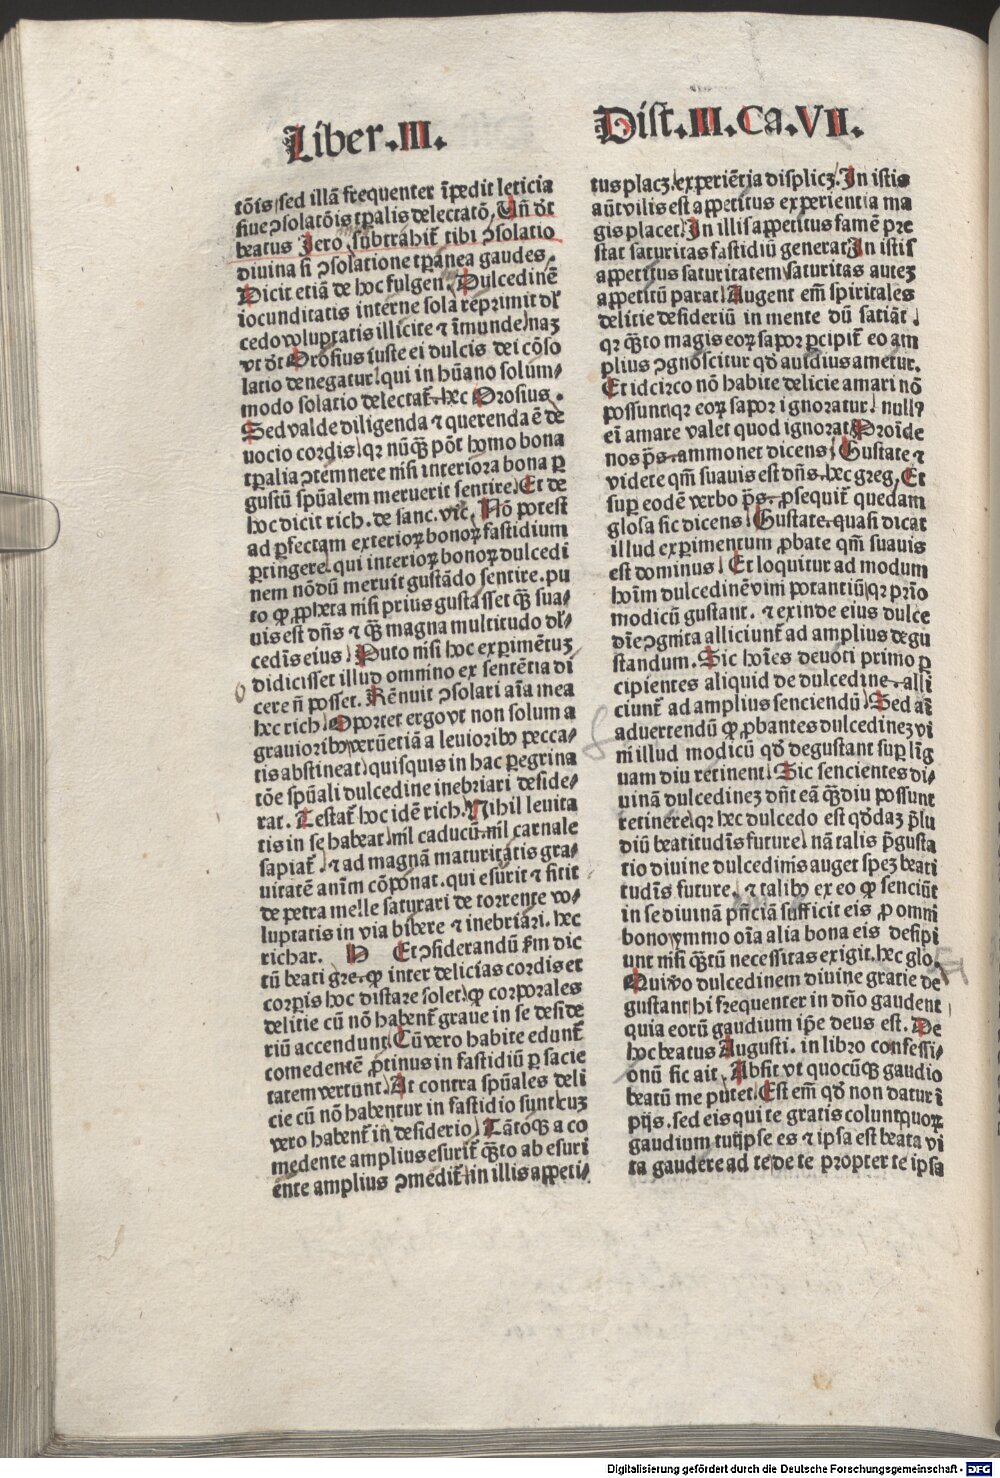 Liber.III.
tōis/sed illā frequenter īpedit leticia
siue ꝯsolatōis tꝑalis delectatō. Un̄ dt̄
beatus Jero. subtrahit̄ tibi ꝯsolatio
diuina si ꝯsolatione tꝑanea gaudes.
Dicit etiā de hoc fulgen. Dulcedinē
iocunditatis interne sola reprimit dl̕
cedo voluptatis illicite ⁊ īmunde/naꝫ
vt dt̄ Orosius iuste ei dulcis dei cōso
latio denegatur/qui in hūano solum⸗
modo solatio delectat̄. hec Orosius.
Sed valde diligenda ⁊ querenda ē de
uocio cordis/qꝛ nūqꝫ pōt homo bona
tꝑalia ꝯtemnere nisi interiora bona ꝑ
gustū spūalem meruerit sentire. Et de
hoc dicit rich. de sanc. vic. Nō potest
ad ꝑfectam exterioꝝ bonoꝝ fastidium
ꝑtingere. qui interioꝝ bonoꝝ dulcedi
nem nōdū meruit gustādo sentire. pu
to ꝙ ꝓpheta nisi prius gustasset qꝫ sua⸗
uis est dn̄s ⁊ qꝫ magna multitudo dl̕⸗
cedīs eius. Puto nisi hoc exꝑimētuꝫ
didicisset illud omnino ex sentētia di
cere n̄ posset. Rēnuit ꝯsolari aīa mea
hec rich. Oportet ergo vt non solum a
grauioribꝫ/verūetiā a leuioribꝫ pecca⸗
tis abstineat/quisquis in hac ꝑegrina
tōe spūali dulcedine inebriari deside⸗
rat. Testat̄ hoc idē rich. Nihil leuita
tis in se habeat/nil̄ caducū. nil̄ carnale
sapiat̄. ⁊ ad magnā maturitatis gra⸗
uitatē anim̄ cōponat. qui esurit ⁊ sitit
de petra melle saturari de torrente vo⸗
luptatis in via bibere ⁊ inebriari. hec
richar. N Et ꝯsiderandū ẜm dic
tū beati gre. ꝙ inter delicias cordis et
corꝑis hoc distare solet/ꝙ corporales
delitie cū nō habent̄ graue in se deside
riū accendunt. Cū vero habite edunt̄
comedentē ꝓtinus in fastidiū ꝑ sacie
tatem vertunt. At contra spūales deli
cie cū nō habentur in fastidio sunt/cuꝫ
vero habent̄ in desiderio. Tātoqꝫ a co
medente amplius esurit̄ qꝫto ab esuri
ente amplius ꝯmedit̄/in illis appeti⸗
Dist.III.Ca.VII.
tus placꝫ/experiētia displicꝫ. In istis
aūt vilis est appetitus experientia ma
gis placet. In illis appetitus famē pre
stat saturitas fastidiū generat. In istis
appetitus saturitatem/saturitas auteꝫ
appetitū parat. Augent em̄ spiritales
delitie desideriū in mente dū satiāt.
qꝛ qꝫto magis eoꝝ sapor ꝑcipit̄ eo am
plius ꝯgnoscitur qd̄ auidius ametur.
Et idcirco nō habite delicie amari nō
possunt/qꝛ eoꝝ sapor ignoratur. null⁹
eī amare valet quod ignorat. Proīde
nos p̄s. ammonet dicens. Gustate ⁊
videte qm̄ suauis est dn̄s. hec greg. Et
suꝑ eodē verbo p̄s. ꝓsequit̄ quedam
glosa sic dicens. Gustate. quasi dicat
illud exꝑimentum ꝓbate qm̄ suauis
est dominus. Et loquitur ad modum
hoīm dulcedinē vini potantiū/qꝛ prīo
modicū gustant. ⁊ exinde eius dulce
dīe ꝯgnita alliciunt̄ ad amplius degu
standum. Sic hoīes deuoti primo ꝑ
cipientes aliquid de dulcedine. alli
ciunt̄ ad amplius senciendū. Sed aī
aduertendū ꝙ ꝓbantes dulcedineꝫ vi
ni illud modicū qd̄ degustant suꝑ līg
uam diu retinent. Sic sencientes di⸗
uinā dulcedineꝫ dn̄t eā qꝫdiu possunt
retinere/qꝛ hec dulcedo est qd̄daꝫ p̄lu
diū beatitudīs future/nā talis p̄gusta
tio diuine dulcedinis auget speꝫ beati
tudīs future. ⁊ talibꝫ ex eo ꝙ senciūt
in se diuinā pn̄ciā sufficit eis ꝓ omni
bono/ymmo oīa alia bona eis desipi
unt nisi qꝫtū necessitas exigit. hec glo.
Qui vo dulcedinem diuine gratie de
gustant/hi frequenter in dn̄o gaudent
quia eorū gaudium ip̄e deus est. De
hoc beatus Augusti. in libro confessi⸗
onū sic ait. Absit vt quocūqꝫ gaudio
beatū me putet. Est em̄ qd̄ non datur ī
pijs. sed eis qui te gratis colunt/quoꝝ
gaudium tu ipse es ⁊ ipsa est beata vi
ta gaudere ad te de te propter te ipsa
Digitalisierung gefördert durch die Deutsche Forschungsgemeinschaft - DFG